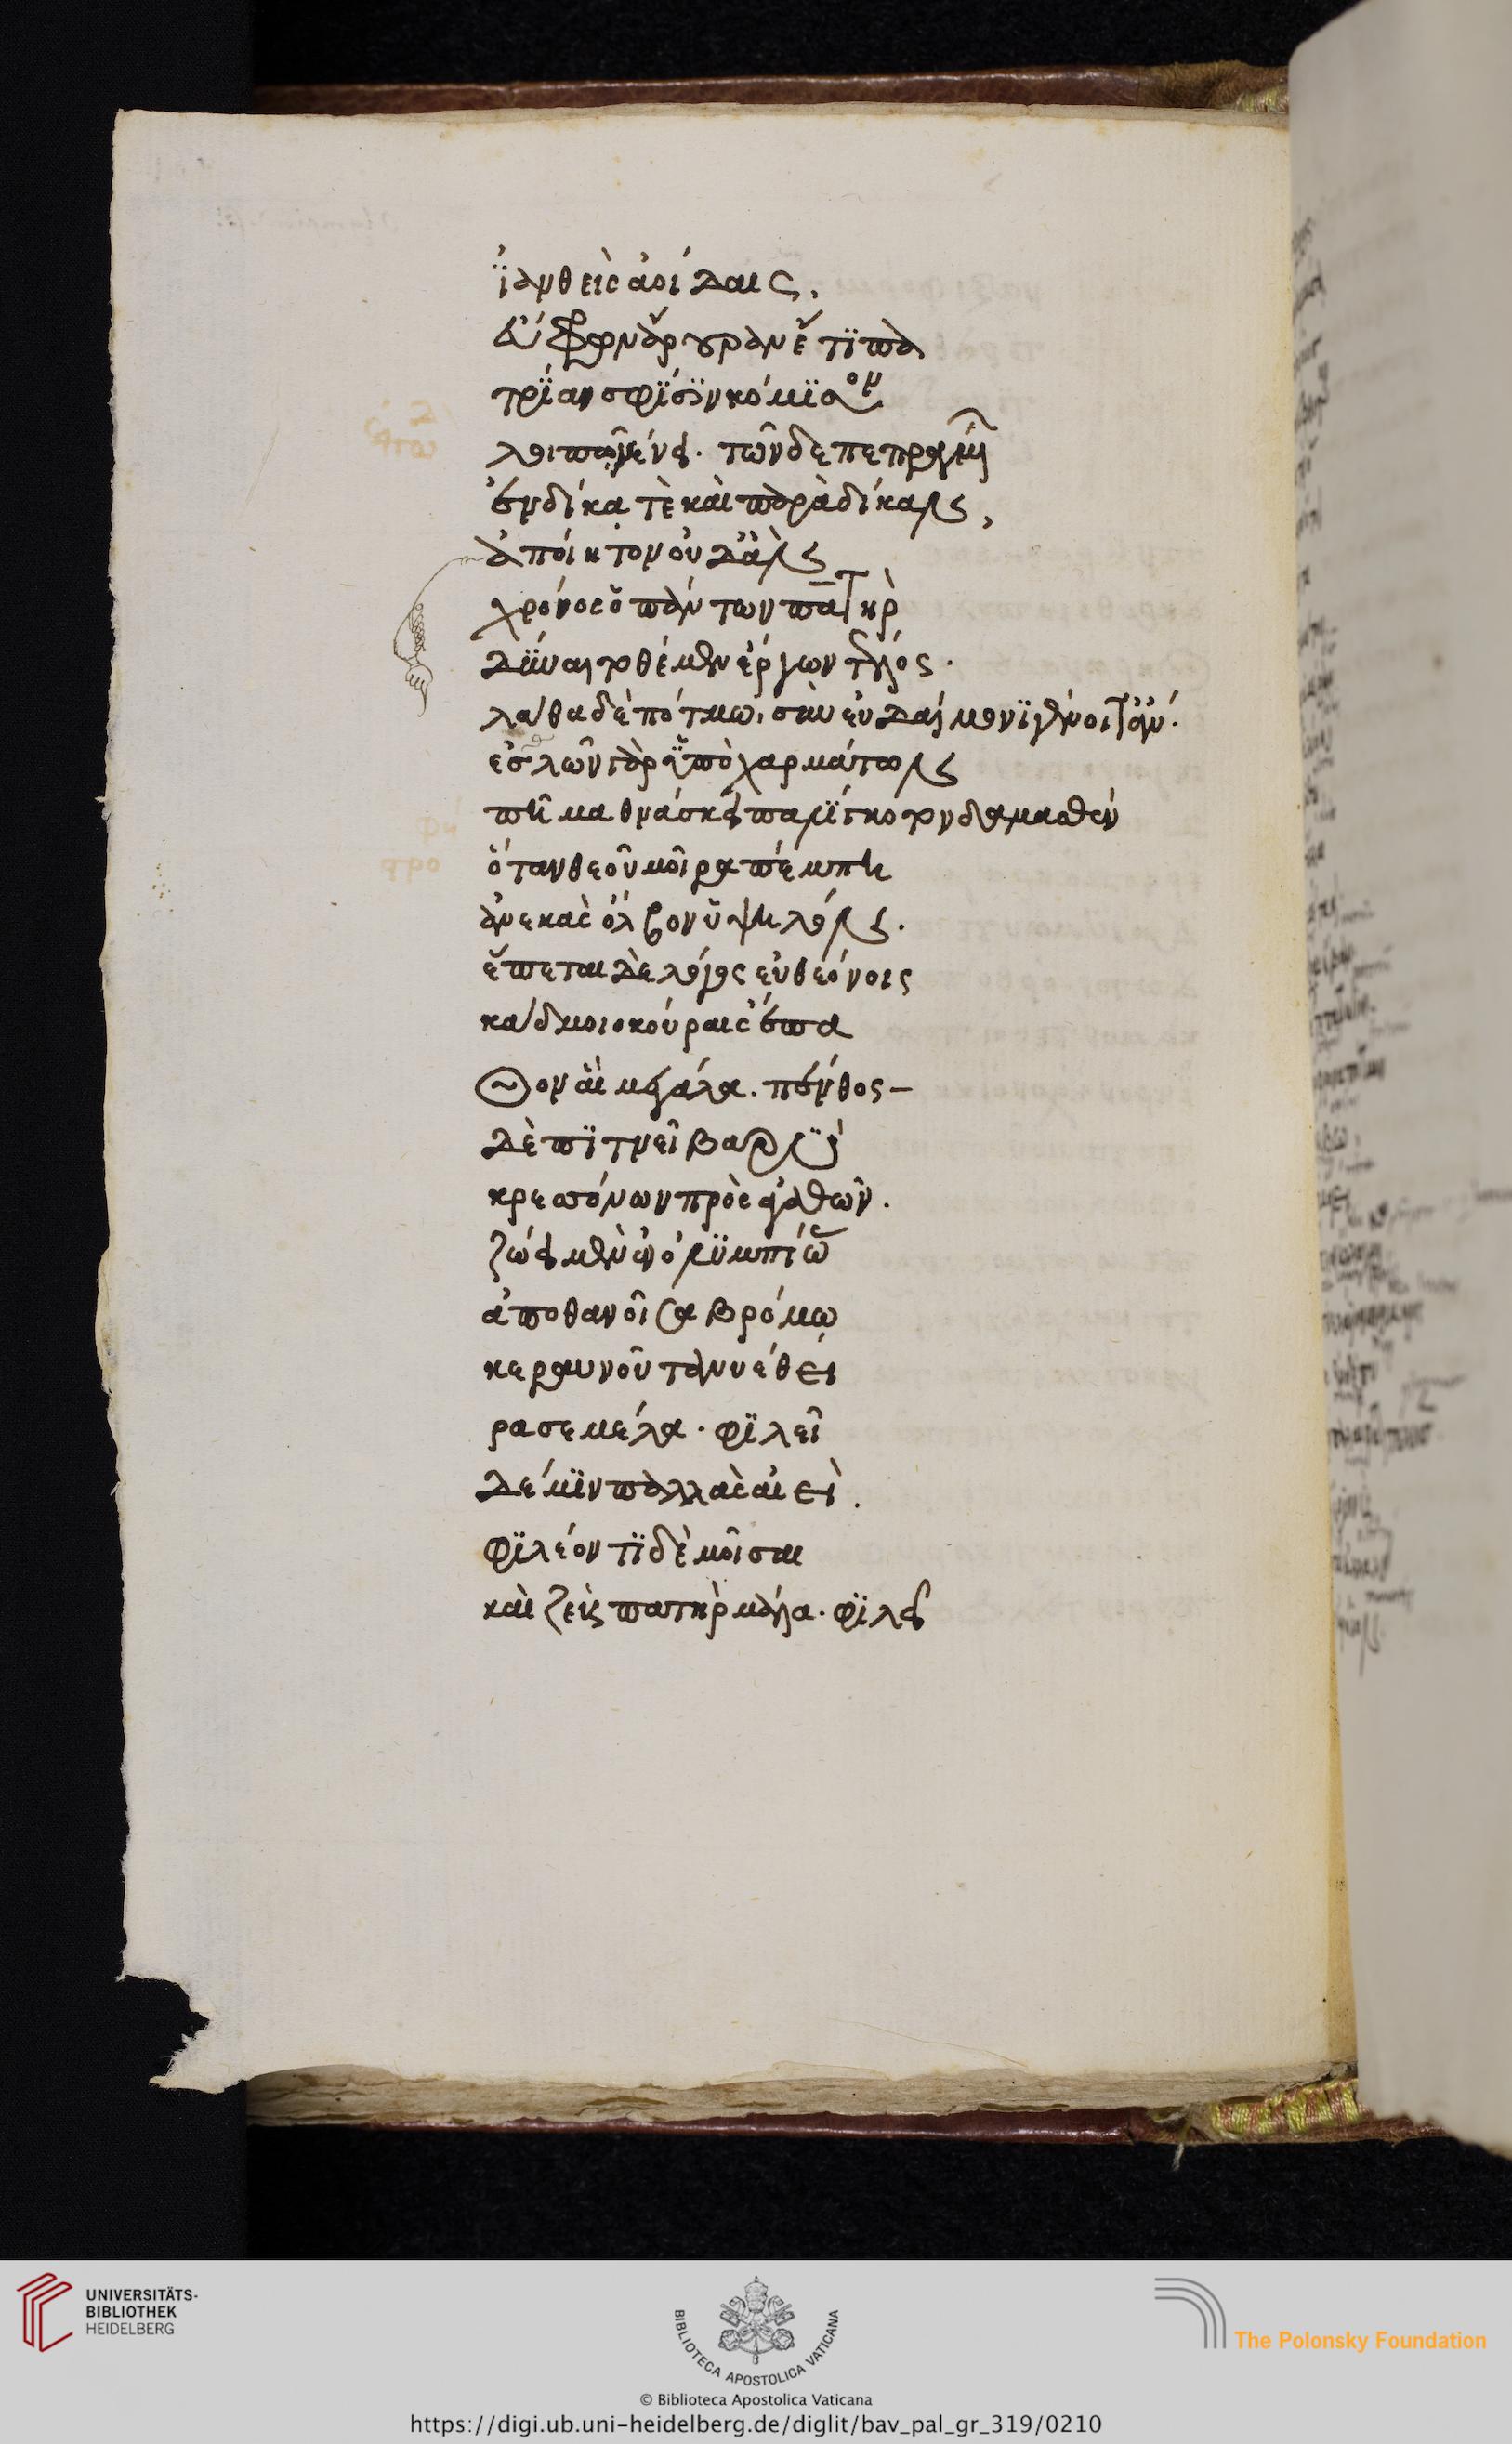 ἰανθεὶς ἀοιδαῖς,
εὔφρων ἄρουραν ἔτι πα
τρίαν σφίσιν κόμισον
λοιπῷ γένει. τῶν δε πεπραγμένων
ἐν δίκα τὲ καὶ παρὰ δίκαν,
ἀποίητον οὐδ' ἂν
χρόνος ὁ πάντων πατὴρ
δύναιτο θέμεν ἔργων τέλος.
λάθα δὲ πότμω, σὺν εὐδαίμονι γένοιτ' ἄν.
ἐσλῶν γὰρ ὑπὸ χαρμάτων
πῆμα θνάσκει παλίγκοτον δαμασθέν
ὅταν θεοῦ μοῖρα πέμπη
ἀνεκὰς ὄλβον ὑψηλόν.
ἕπεται δὲ λόγος εὐθρόνοις
κάδμοιο κούραις ἔπα
θον αἳ μεγάλα. πένθος
δὲ πιτνεῖ βαρὺ
κρεσσόνων πρὸς ἀγαθῶν.
ζώει μὲν ἐν ὀλυμπίοις
ἀποθανοῖσα βρόμω
κεραυνοῦ τανυέθει
ρα σεμέλα. φιλεῖ
δέ μιν παλλὰς αἰεὶ.
φιλέοντι δὲ μοῖσαι
καὶ ζεὺς πατὴρ μάλα. φιλεῖ
UNIVERSITÄTS-
BIBLIOTHEK
HEIDELBERG
BIBLIOTECA APOSTOLICA VATICANA
© Biblioteca Apostolica Vaticana
The Polonsky Foundation
https://digi.ub.uni-heidelberg.de/diglit/bav_pal_gr_319/0210